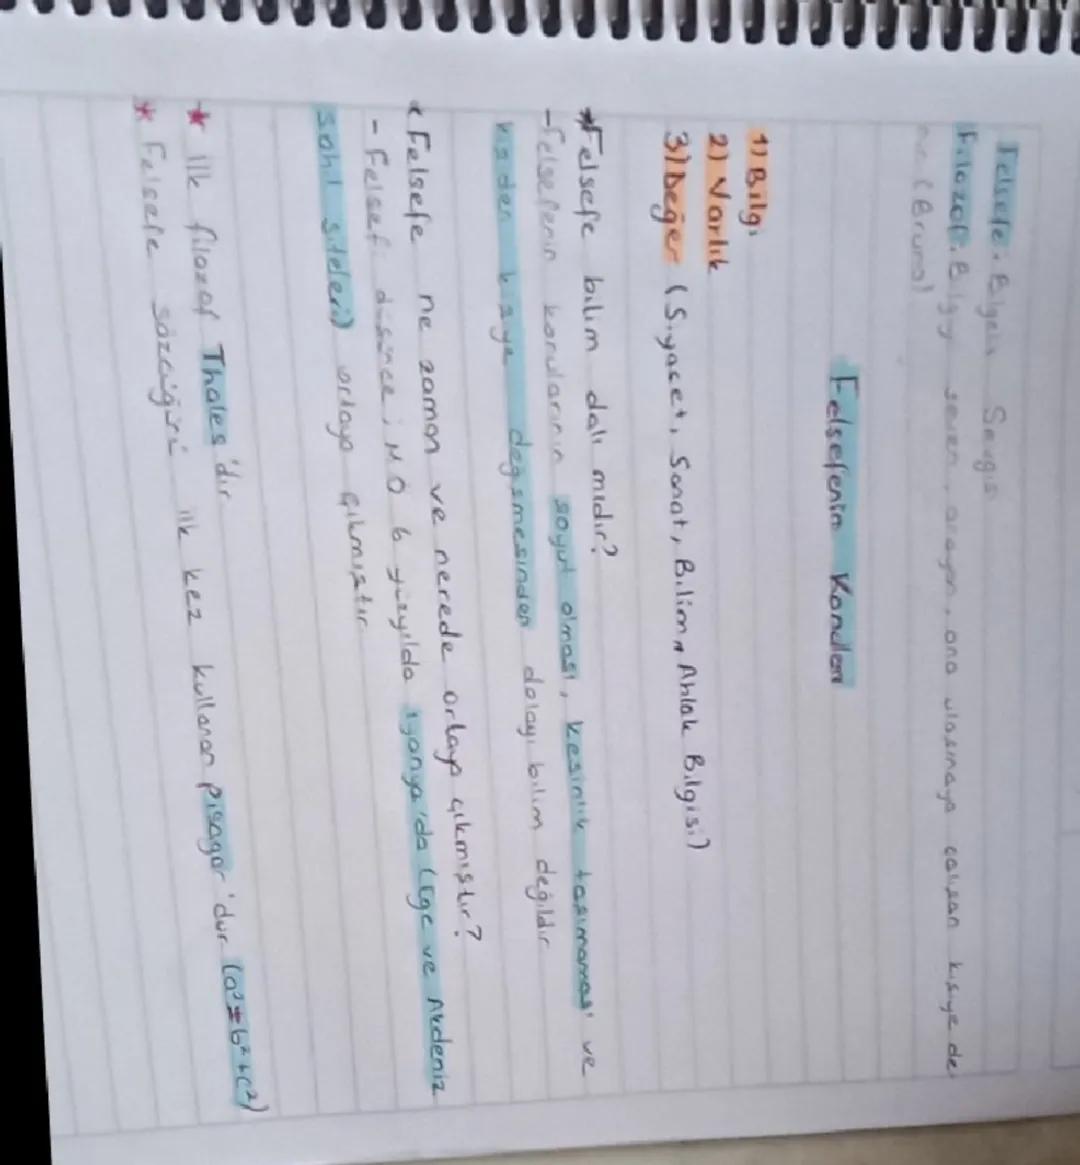 Felsefe: Bilgelik Sevgisi
Filozof: Bilgiyi seven, arayan, ona ulaşmaya çalışan kişiye de-
nir (Bruno)
Felsefenin Konuları
1) Bilgi
2) Varlık
3) Değer (Siyaset, Sanat, Bilim, Ahlak Bilgisi)
*Felsefe bilim dalı mıdır?
-Felsefenin konularının soyut olması, kesinlik taşımaması ve
kişiden kişiye değişmesinden dolayı bilim değildir
* Felsefe ne zaman ve nerede ortaya çıkmıştır?
- Felsefi düşünce; MÖ 6 yüzyılda iyonya'da (Ege ve Akdeniz
sahil siteleri) ortaya çıkmıştır.
* İlk filozof Thales'dir
* Felsefe sözcüğünü ilk kez kullanan pisagor'dur (a²=b²+c²)